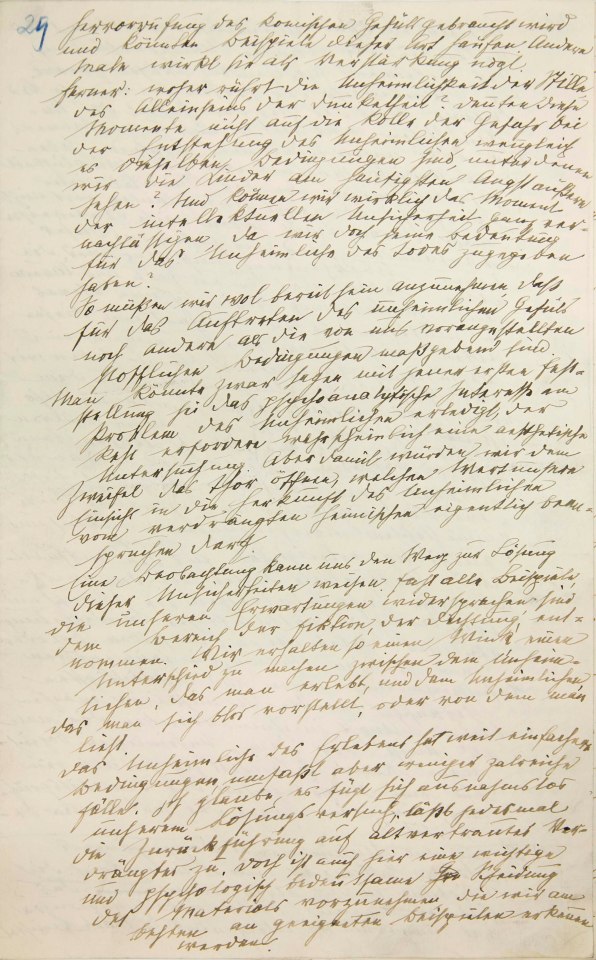 29
hervorrufung des komischen Gefüls gebraucht wird
und könnten Beispiele dieser Art häufen. Andere
Male wirkt sie als Verstärkung udgl.
Ferner: woher rührt die Unheimlichkeit der Stille
des Alleinseins der Dunkelheit? Deuten diese
Momente nicht auf die Rolle der Gefahr bei
der Entstehung des Unheimlichen wengleich
es dieselben Bedingungen sind unter denen
wir die Kinder am häufigsten Angst äußern
sehen? Und können wir wirklich das Moment
der intellektuellen Unsicherheit ganz ver-
nachlässigen da wir doch seine Bedeutung
für das Unheimliche des Todes zugegeben
haben?
So müßen wir wol bereit sein anzunemen, daß
für das Auftreten des unheimlichen Gefüls
noch andere als die von uns vorangestellten
stofflichen Bedingungen maßgebend sind
Man könnte zwar sagen mit jener ersten Fest-
stellung sei das psychoanalytische Interesse am
Problem des Unheimlichen erledigt, der
Rest erfordere warscheinlich eine aesthetische
Untersuchung. Aber damit würden wir dem
Zweifel das Thor öffnen, welchen Wert unsere
Einsicht in die Herkunft des Unheimlichen
vom verdrängten Heimischen eigentlich bean-
spruchen darf
Eine Beobachtung kann uns den Weg zur Lösung
dieser Unsicherheiten weisen. Fast alle Beispiele,
die unseren Erwartungen widersprachen sind
dem Bereich der Fiktion, der Dichtung, ent-
nommen. Wir erhalten so einen Wink, einen
Unterschied zu machen zwischen dem Unheim-
lichen, das man erlebt, und dem Unheimlichen
das man sich blos vorstellt, oder von dem man
liest.
Das Unheimliche des Erlebens hat weit einfachere
Bedingungen umfaßt aber weniger zalreiche
Fälle. Ich glaube, es fügt sich ausnahmslos
unserem Lösungsversuch, läßt jedesmal
die Zurückführung auf altvertrautes Ver-
drängtes zu. Doch ist auch hier eine wichtige
und psychologisch bedeutsame Scheidung
des Materials vorzunehmen die wir am
besten an geeigneten Beispielen erkennen
werden.